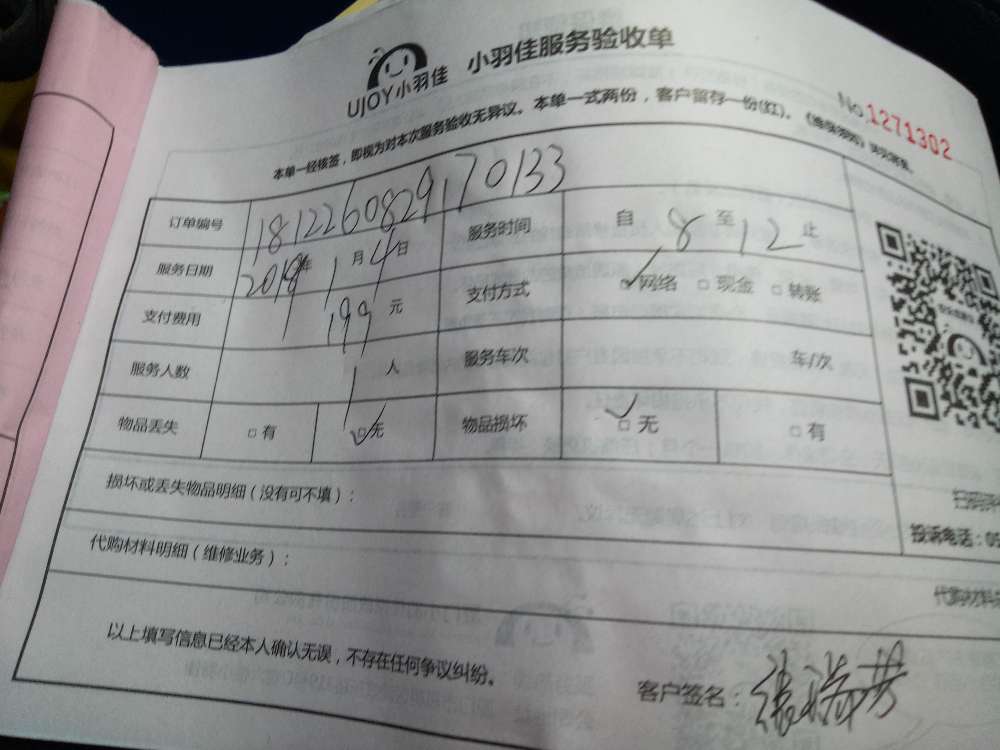 UJOY小羽佳 小羽佳服务验收单
No.1271302
本单一经核签，即视为对本次服务验收无异议。本单一式两份，客户留存一份(红)。
订单编号 181226082917 0133
服务日期 2018年1月4日 服务时间 自 8 至 12 止
支付费用 199 元 支付方式 ☑网络 □现金 □转账
服务人数 1 人 服务车次 车/次
物品丢失 □有 ☑无 物品损坏 ☑无 □有
损坏或丢失物品明细（没有可不填）：
投诉电话：05
代购材料明细（维修业务）：
代购材料
以上填写信息已经本人确认无误，不存在任何争议纠纷。
客户签名：